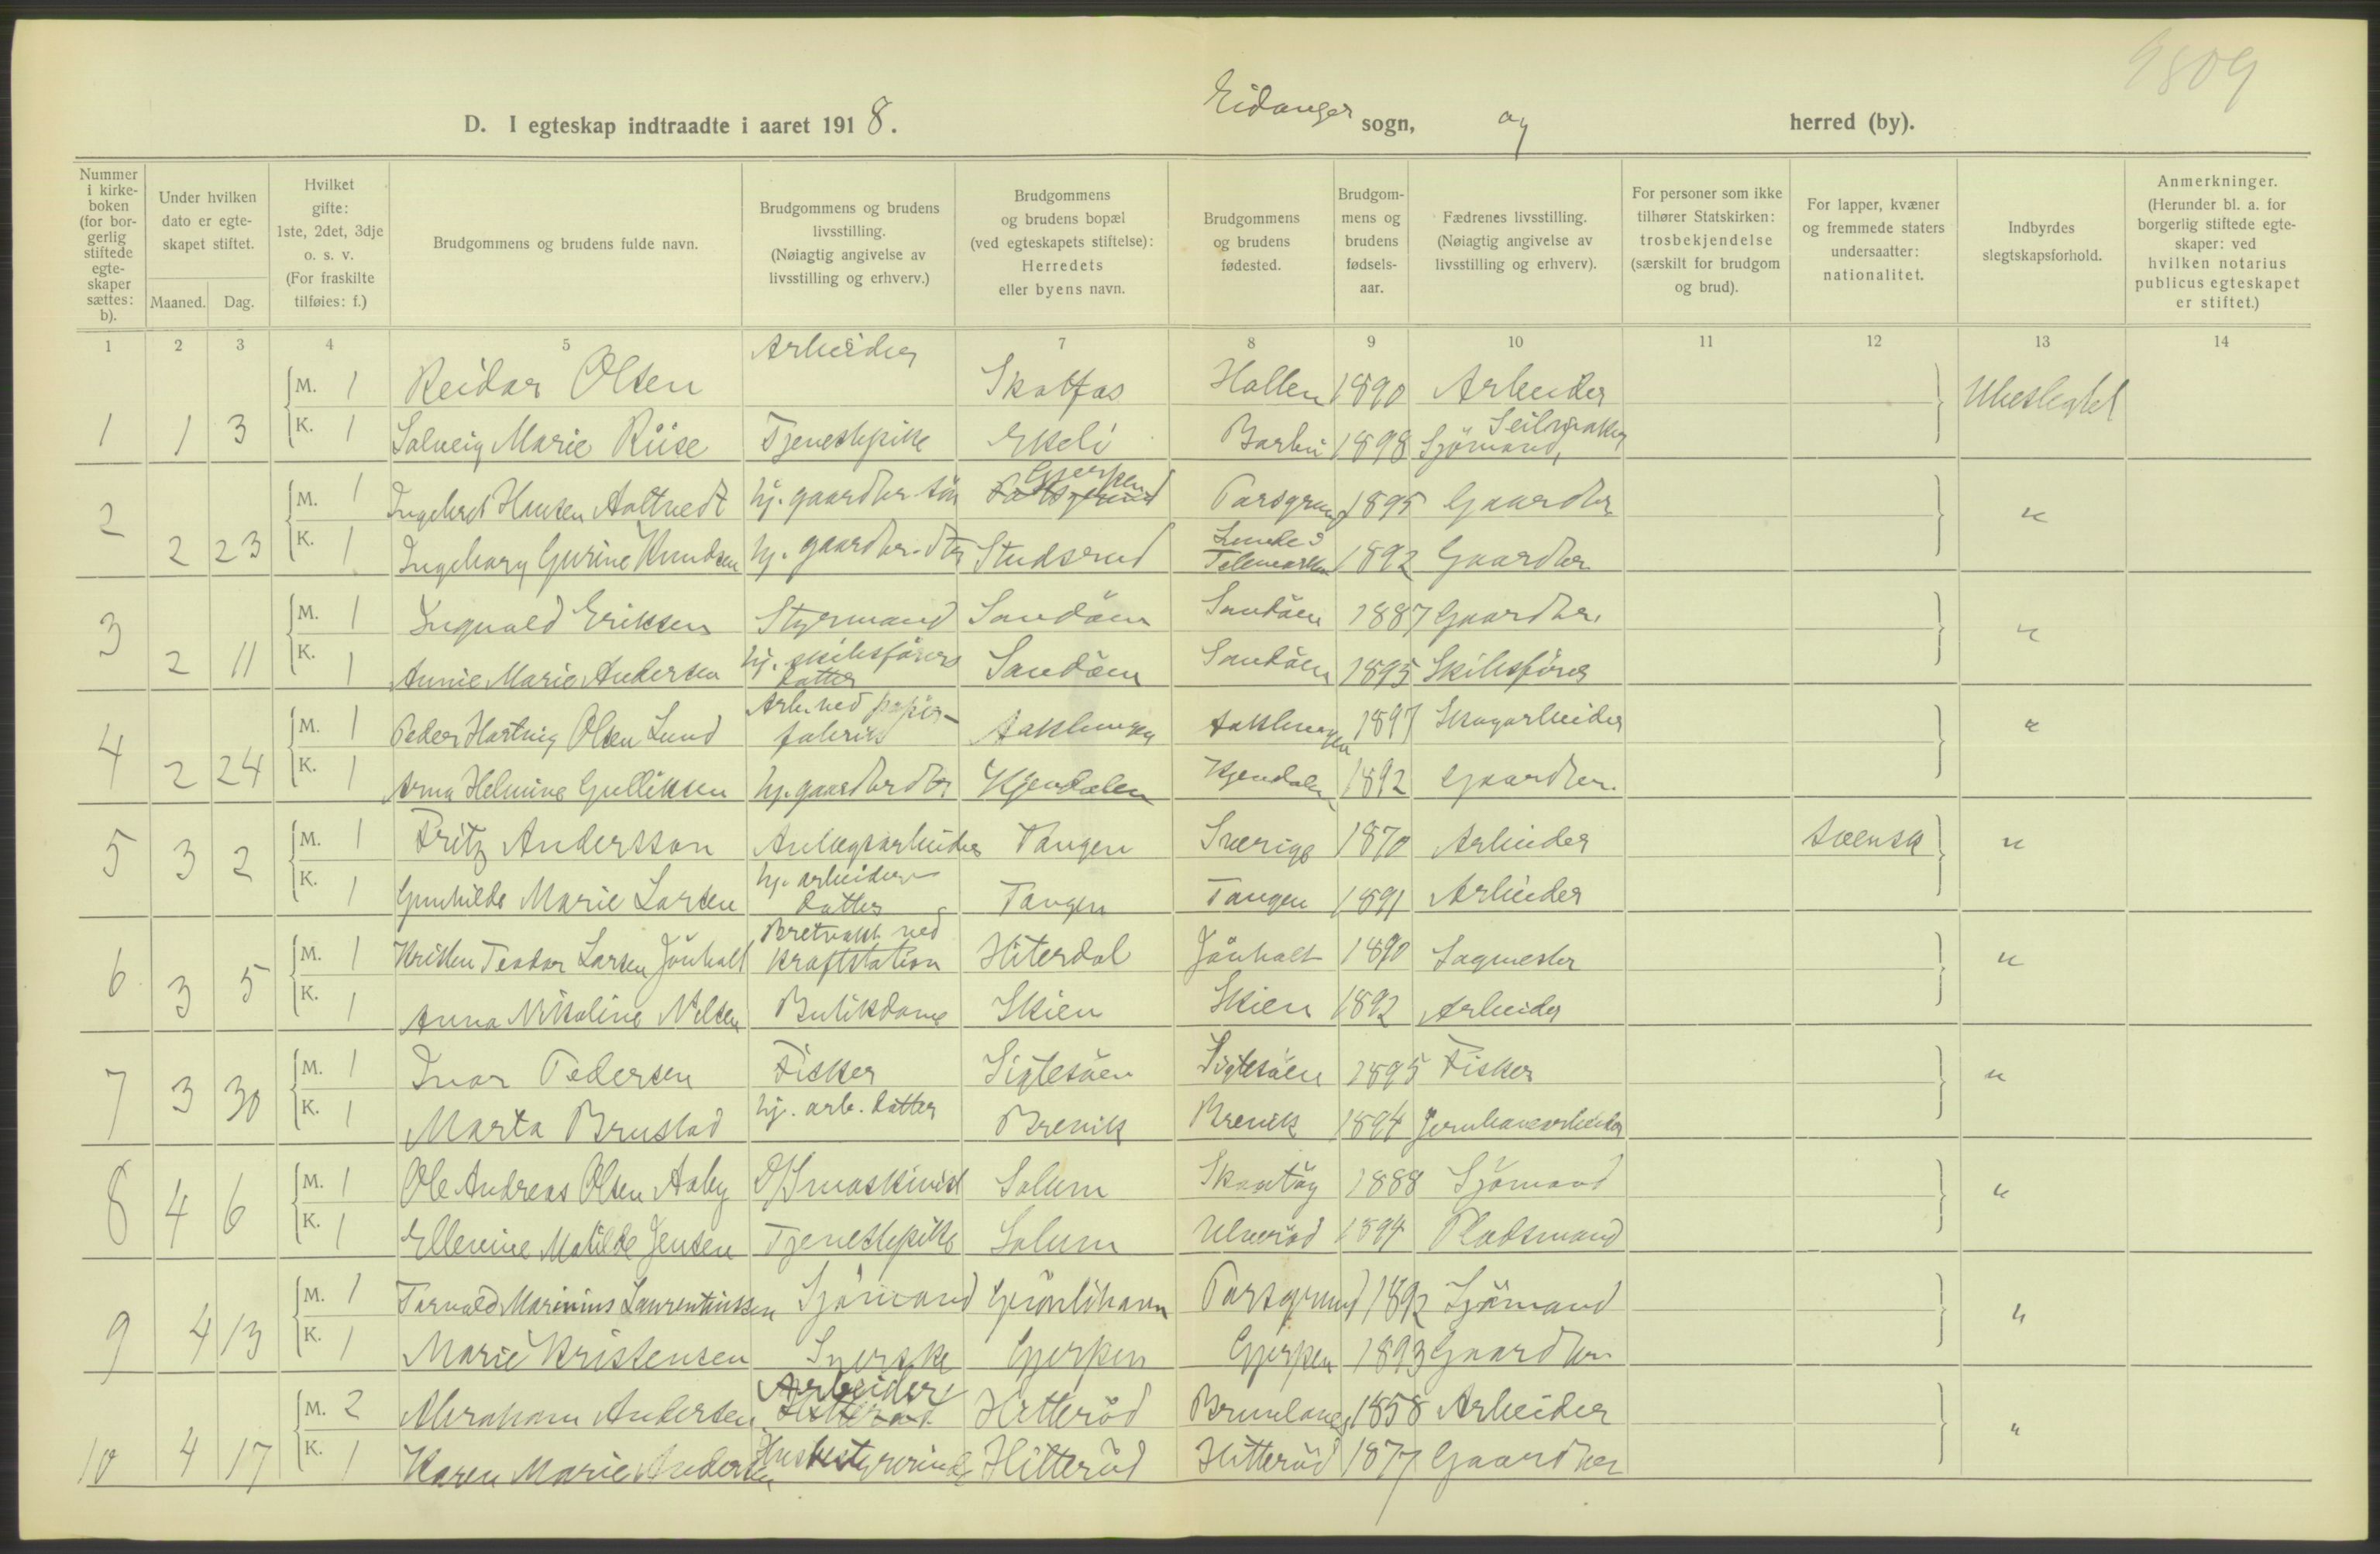 9809
D. I egteskap indtraadte i aaret 1918. Eidanger sogn, og herred (by).
Nummer i kirkeboken (for borgerlig stiftede egteskaper sættes: b).
Under hvilken dato er egteskapet stiftet.
Maaned. Dag.
Hvilket gifte: 1ste, 2det, 3dje o. s. v. (For fraskilte tilføies: f.)
Brudgommens og brudens fulde navn.
Brudgommens og brudens livsstilling. (Nøiagtig angivelse av livsstilling og erhverv.)
Brudgommens og brudens bopæl (ved egteskapets stiftelse): Herredets eller byens navn.
Brudgommens og brudens fødested.
Brudgommens og brudens fødselsaar.
Fædrenes livsstilling. (Nøiagtig angivelse av livsstilling og erhverv).
For personer som ikke tilhører Statskirken: trosbekjendelse (særskilt for brudgom og brud).
For lapper, kvæner og fremmede staters undersaatter: nationalitet.
Indbyrdes slegtskapsforhold.
Anmerkninger. (Herunder bl. a. for borgerlig stiftede egteskaper: ved hvilken notarius publicus egteskapet er stiftet.)
1 2 3 4 5 7 8 9 10 11 12 13 14
M. 1 Reidar Olsen Arbeider Skotfos Hollen 1890 Arbeider Ubeslegtet
1 1 3 K. 1 Solveig Marie Riise Tjenestepike Ekeli Barbu 1898 Sjömand, Seilmaker
2 M. 1 Ingebret Hansen Aaltvedt hj. gaardbr. sön Gjerpen Porsgrund 1895 Gaardbr. "
2 23 K. 1 Ingeborg Gurine Knudsen hj. gaardbr. dtr Studsrud Lunde i Telemarken 1892 Gaardbr
3 M. 1 Ingvald Eriksen Styrmand Sandöen Sandöen 1887 Gaardbr. "
2 11 K. 1 Annie Marie Andersen hj. skibsförers datter Sandöen Sandöen 1895 Skibsförer
4 M. 1 Peder Hartvig Olsen Lund Arb. ved papirfabrik Aaklungen Aaklungen 1897 Skogarbeider "
2 24 K. 1 Anna Helmine Gulliksen hj. gaardbr dtr Kjendalen Kjendalen 1892 Gaardbr.
5 3 2 M. 1 Fritz Andersson Anlægsarbeider Tangen Sverige 1870 Arbeider svensk "
K. 1 Gunhilde Marie Larsen hj. arbeiderdatter Tangen Tangen 1891 Arbeider
6 3 5 M. 1 Kristen Teodor Larsen Jönholt Bretvakt ved kraftstation Hiterdal Jönholt 1890 Sagmester "
K. 1 Anna Nikoline Nilsen Butikdame Skien Skien 1892 Arbeider
7 3 30 M. 1 Ivar Pedersen Fisker Sigtesöen Sigtesöen 1895 Fisker "
K. 1 Marta Brustad hj. arb. datter Brevik Brevik 1894 Jernbanearbeider
8 4 6 M. 1 Ole Andreas Olsen Aaby D/S maskinist Solum 1888 Sjömand "
K. 1 Ellevine Matilde Jensen Tjenestepike Solum Ulveröd 1894 Pladsmand
M. 1 Torvald Marinius Laurentiussen Sjömand Grönlihavn Porsgrund 1892 Sjömand "
9 4 13 K. 1 Marie Kristensen Syerske Gjerpen Gjerpen 1893 Gaardbr.
M. 2 Abraham Andersen Arbeider Hitteröd Brunlanes 1858 Arbeider "
10 4 17 K. 1 Karen Marie Andersen Husbestyrerinde Hitteröd Hitteröd 1877 Gaardbr